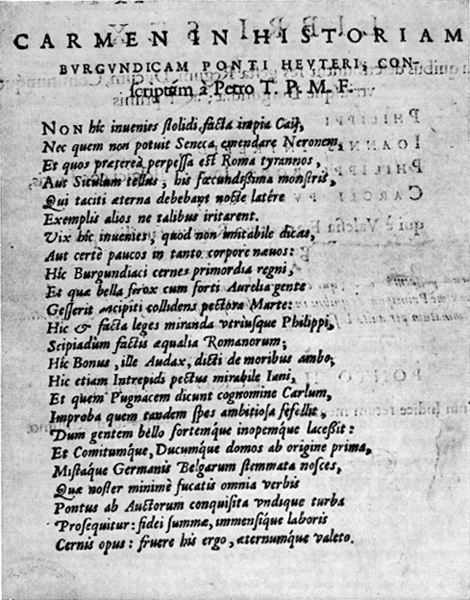 CARMEN IN HISTORIAM
BVRGVNDICAM PONTI HEVTERI, CON-
scriptum à Petro T. P. M. F.
NON hîc inuenies stolidi facta impia Caij,
Nec quem non potuit Seneca emendare Neronem,
Et quos præterea perpessa est Roma tyrannos,
Aut Siculum tellus, his fœcundissima monstris,
Qui taciti æterna debebant nocte latére
Exemplis alios ne talibus irritarent.
Vix hîc inuenies, quod non imitabile dicas,
Aut certè paucos in tanto corpore næuos:
Hîc Burgundiaci cernes primordia regni,
Et quæ bella ferox cum forti Aurelia gente
Gesserit ancipiti collidens pectora Marte:
Hic & facta leges miranda vtriusque Philippi,
Scipiadûm factis æqualia Romanorum;
Hîc Bonus, ille Audax, dicti de moribus ambo,
Hic etiam Intrepidi pectus mirabile Iani,
Et quem Pugnacem dicunt cognomine Carlum,
Improba quem tandem spes ambitiosa fefellit,
Dum gentem bello fortemque inopemque lacessit:
Et Comitumque, Ducumque domos ab origine prima,
Mistaque Germanis Belgarum stemmata nosces,
Quæ noster minimè fucatis omnia verbis
Pontus ab Auctorum conquisita vndique turba
Prosequitur: fidei summæ, immensique laboris
Cernis opus: fruere his ergo, æternumque valeto.